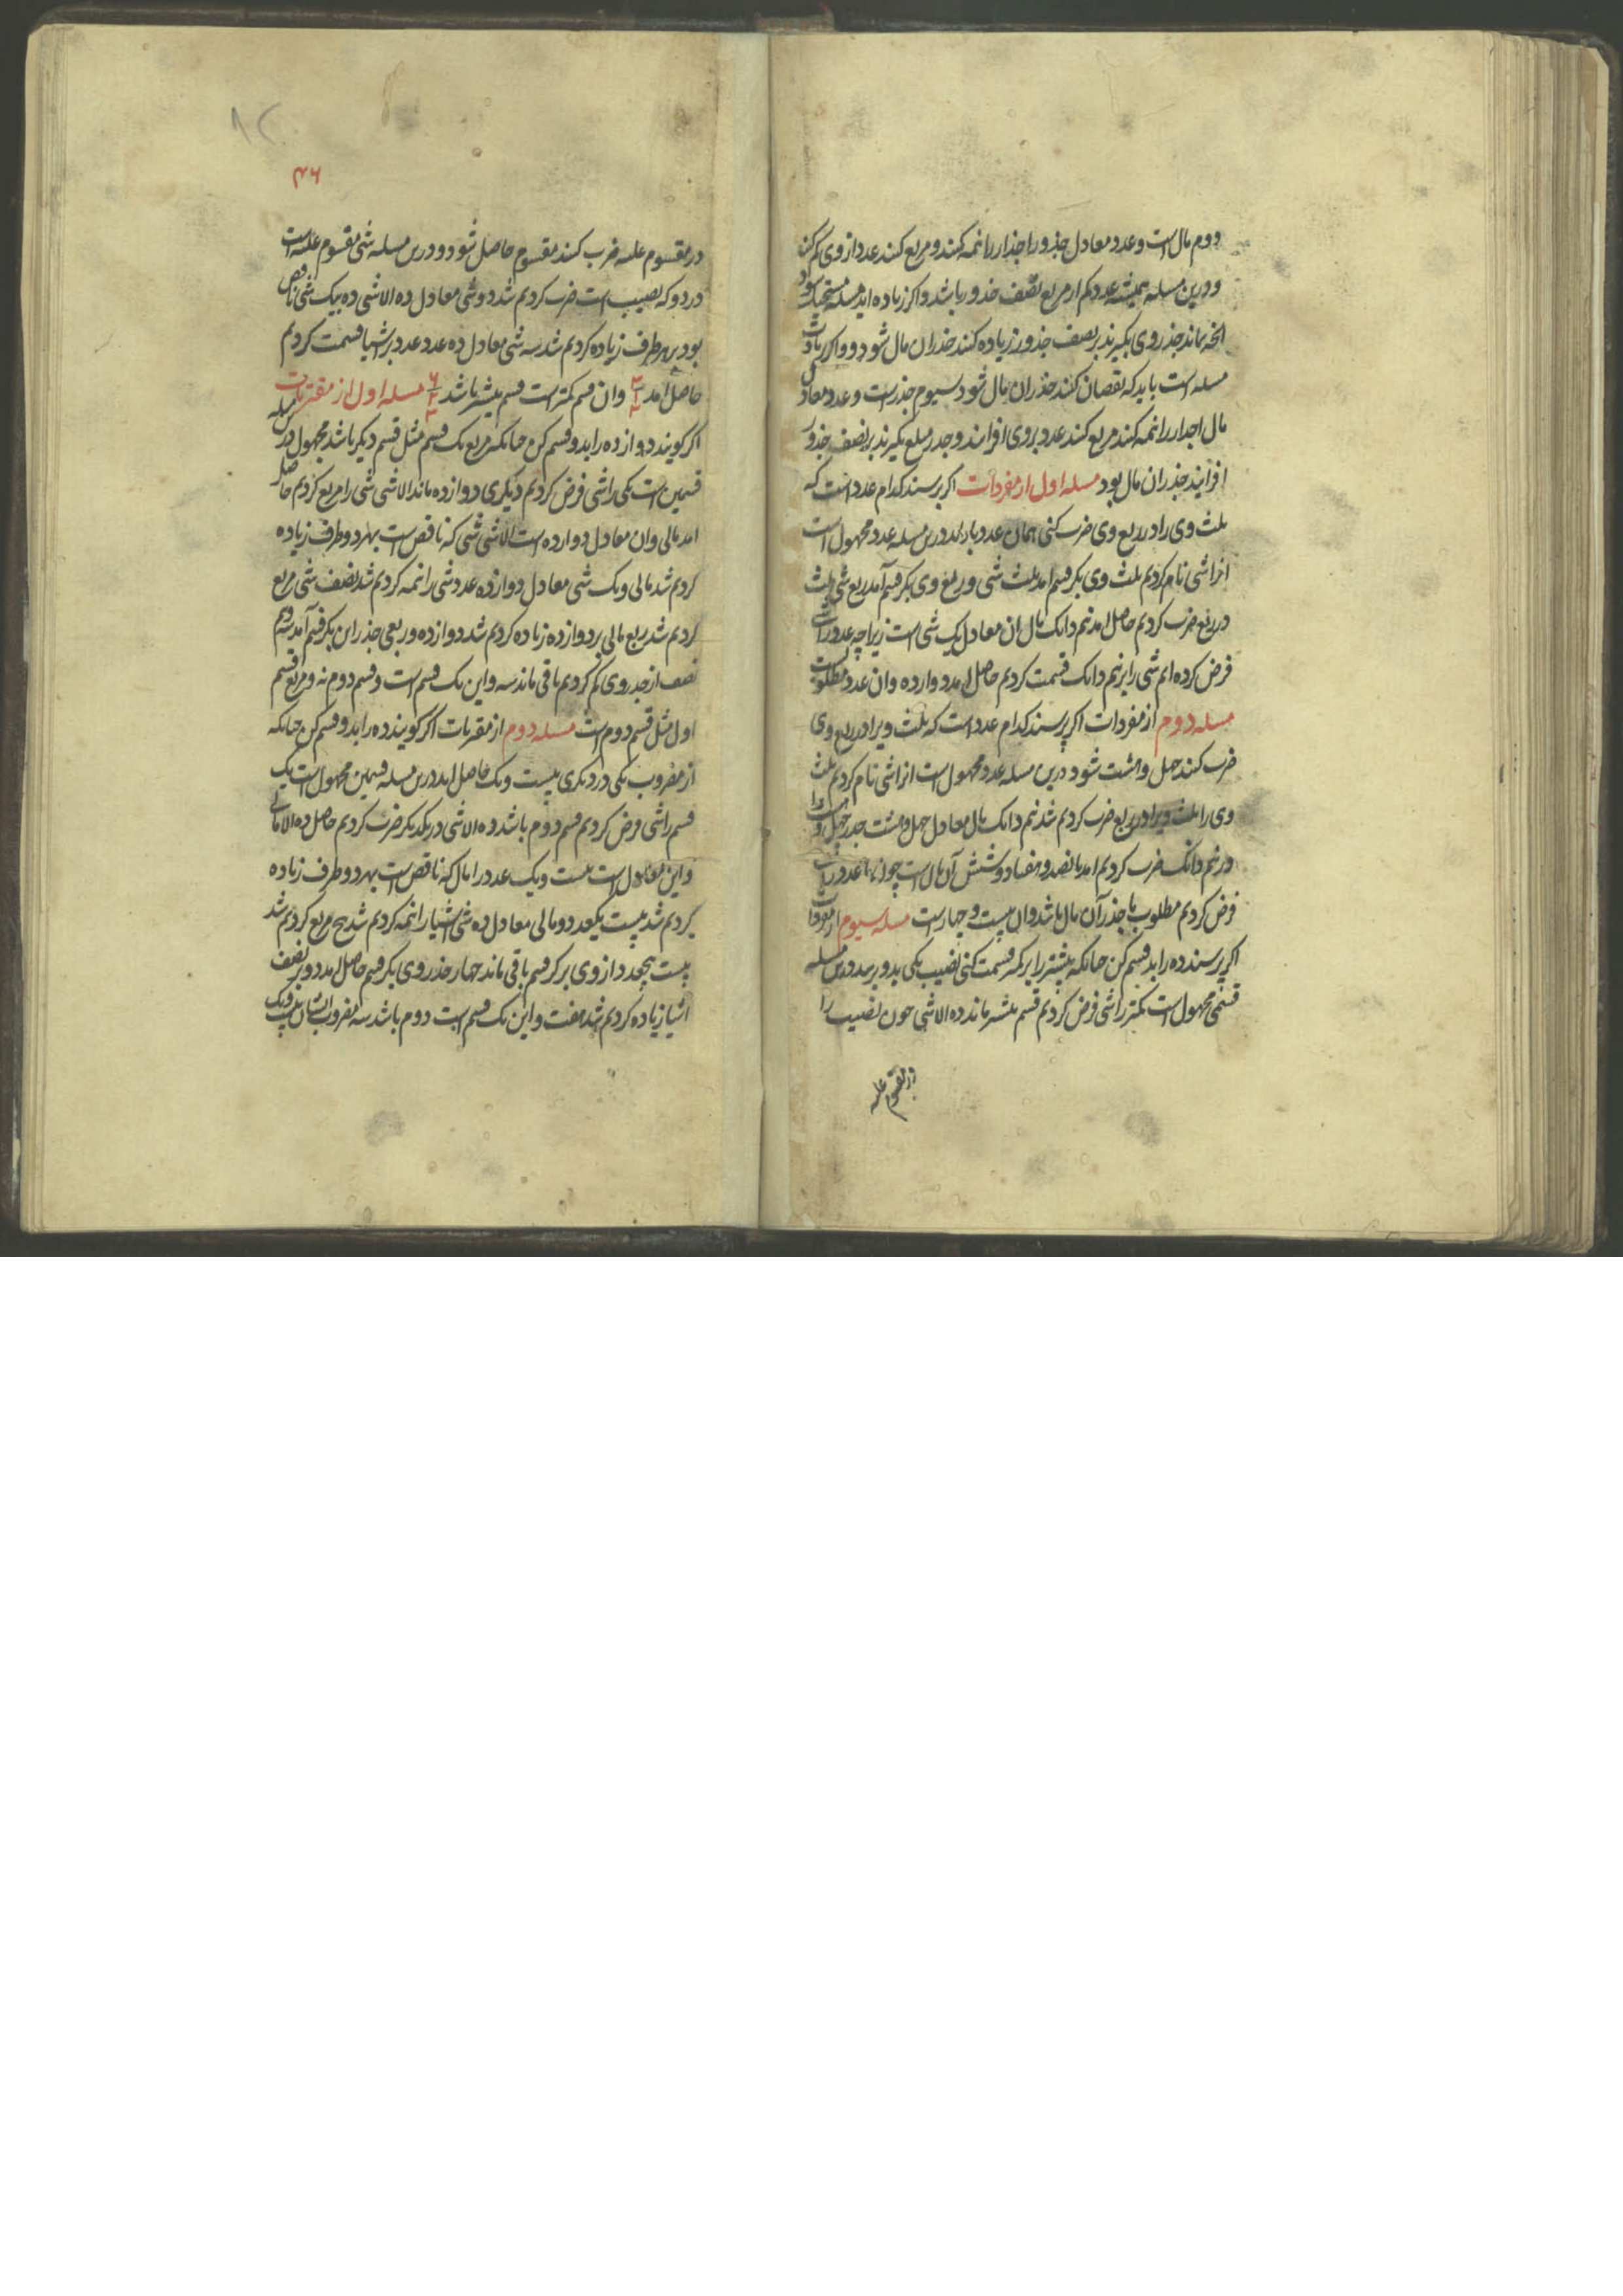 دوم مال است و عدد معادل جذور را جذار را نمه کنند و مربع کنند عدد از وی کم کنند
و درین مسله همیشه عدد کم از مربع نصف جذور باشد و اکر زیاده اید مسله مستحیل بود
انچه بماند جذر وی بکیرند بر نصف جذور زیاده کنند جذر ان مال شود و اکر زیادت
مسله است باید که نقصان کنند جذر ان مال شود سیوم جذر است و عدد معادل
مال اجدار را نمه کنند مربع کنند عدد بروی افزایند و جدر مبلغ بکیرند بر نصف جذور
افزایند جذر ان مال بود مسله اول از مفردات اکر پرسند کدام عدد است که
ثلث وی را در ربع وی ضرب کنی همان عدد باز اید درین مسله عدد مجهول است
انرا شی نام کردیم ثلث وی بکرفتیم امد ثلث شی و ربع وی بکرفتیم آمد ربع شی ثلث
در ربع ضرب کردیم حاصل امد نیم دانک مال ان معادل یک شی است زیراچه عدد را شی
فرض کرده ایم شی را بر نیم دانک قسمت کردیم حاصل امد دوازده وان عدد مطلوبست
مسله دوم از مفردات اکر پرسند کدام عدد است که ثلث ویرا در ربع وی
ضرب کنند چهل و هشت شود درین مسله عدد مجهول است انرا شی نام کردیم ثلث
وی را ثلث ویرا در ربع ضرب کردیم شد نیم دانک مال معادل چهل و هشت
در نیم دانک ضرب کردیم امد پانصد و هفتاد و شش آن مال است چون ما عدد را شی
فرض کردیم مطلوب ما جذر آن مال باشد وان بیست و چهار است مسله سیوم از مفردات
اکر پرسند ده را بدو قسم کن چنانکه بیشتر را بر کمتر قسمت کنی نصیب یکی بدو برسد درین مسله
قسمی مجهول است کمتر را شی فرض کردیم قسم بیشتر ماند ده الا شی چون نصیب را
در مقسوم علیه
۴۶
در مقسوم علیه ضرب کنند مقسوم حاصل شود و درین مسله شی مقسوم علیه است
در دو که نصیب است ضرب کردیم شد دو شی معادل ده الا شی ده بیک شی ناقص
بود بر هر طرف زیاده کردیم شد سه شی معادل ده عدد عدد بر اشیا قسمت کردیم
حاصل امد وان قسم کمتر است قسم بیشتر باشد مسله اول از مقترنات
اکر کویند دوازده را بدو قسم کن چنانکه مربع یک قسم مثل قسم دیکر باشد مجهول درین مسله
قسمین است یکی را شی فرض کردیم دیکری دوازده ماند الا شی شی را مربع کردیم حاصل
امد مالی وان معادل دوازده است الا شی شی که ناقص است بهر دو طرف زیاده
کردیم شد مالی و یک شی معادل دوازده عدد شی را نمه کردیم شد نصف شی مربع
کردیم شد ربع مالی بر دوازده زیاده کردیم شد دوازده و ربعی جذر این بکرفتیم آمد سه و نیم
نصف از جذر وی کم کردیم باقی ماند سه و این یک قسم است و قسم دوم نه و مربع قسم
اول مثل قسم دوم است مسله دوم از مقترنات اکر کویند ده را بدو قسم کن چنانکه
از مضروب یکی در دیکری بیست و یک حاصل اید درین مسله قسمین مجهول است یک
قسم را شی فرض کردیم قسم دوم باشد ده الا شی در یکدیکر ضرب کردیم حاصل ده الا مالی
و این معادل است بیست و یک عدد را مال که ناقص است بهر دو طرف زیاده
کردیم شد بیست یکعدد و مالی معادل ده شی اشیا را نمه کردیم شد پنج مربع کردیم شد
بیست پنجعدد از وی بر کرفتیم باقی ماند چهار جذر وی بکرفتیم حاصل امد دو بر نصف
اشیا زیاده کردیم شد هفت و این یک قسم است دوم باشد سه مضروب ایشان بیست و یک